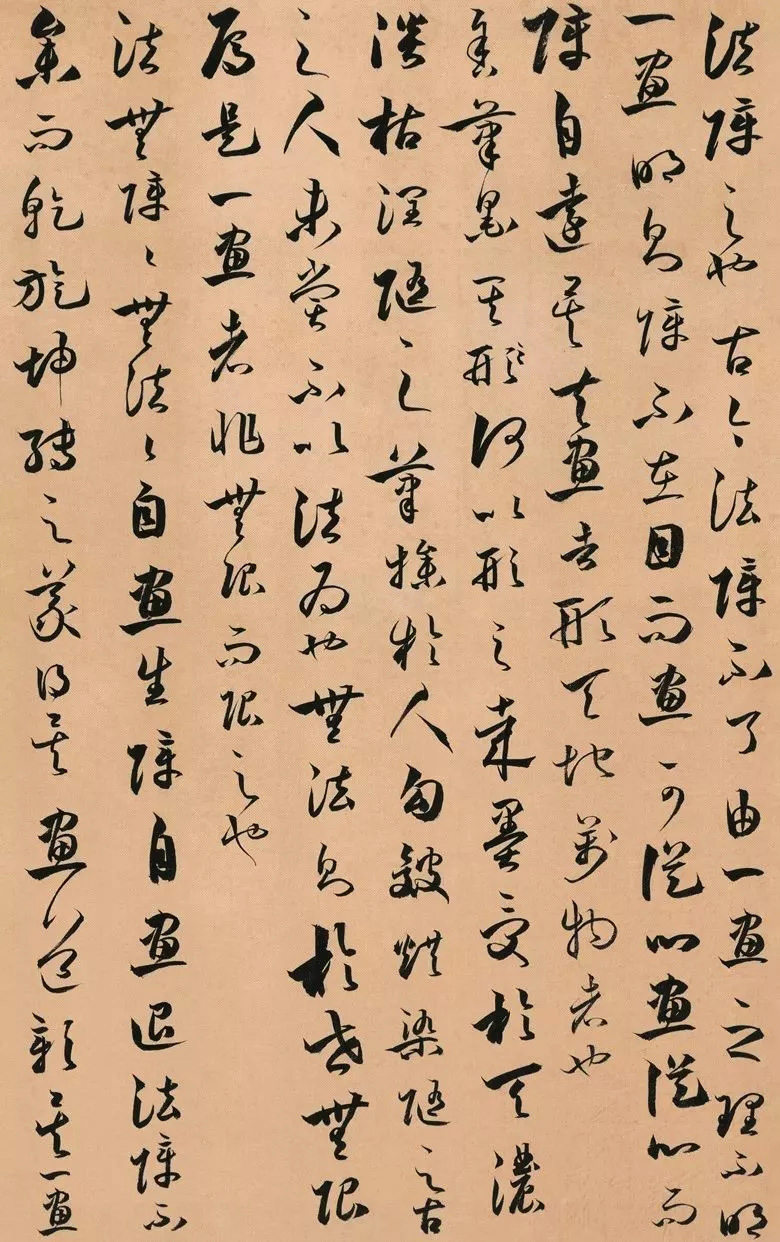 法障之也古今法障不了由一畫之理不明
一畫明則障不在目而畫可從心畫從心而
障自遠矣夫畫者形天地萬物者也
舍筆墨其形何以形之哉墨受於天濃
淡枯潤隨之筆操於人勾皴烘染隨之古
之人未嘗不以法為也無法則於世無限
焉是一畫者非無限而限之也
法無障〻無法〻自畫生障自畫退法障不
參而乾旋坤轉之義得矣畫道彰矣一畫